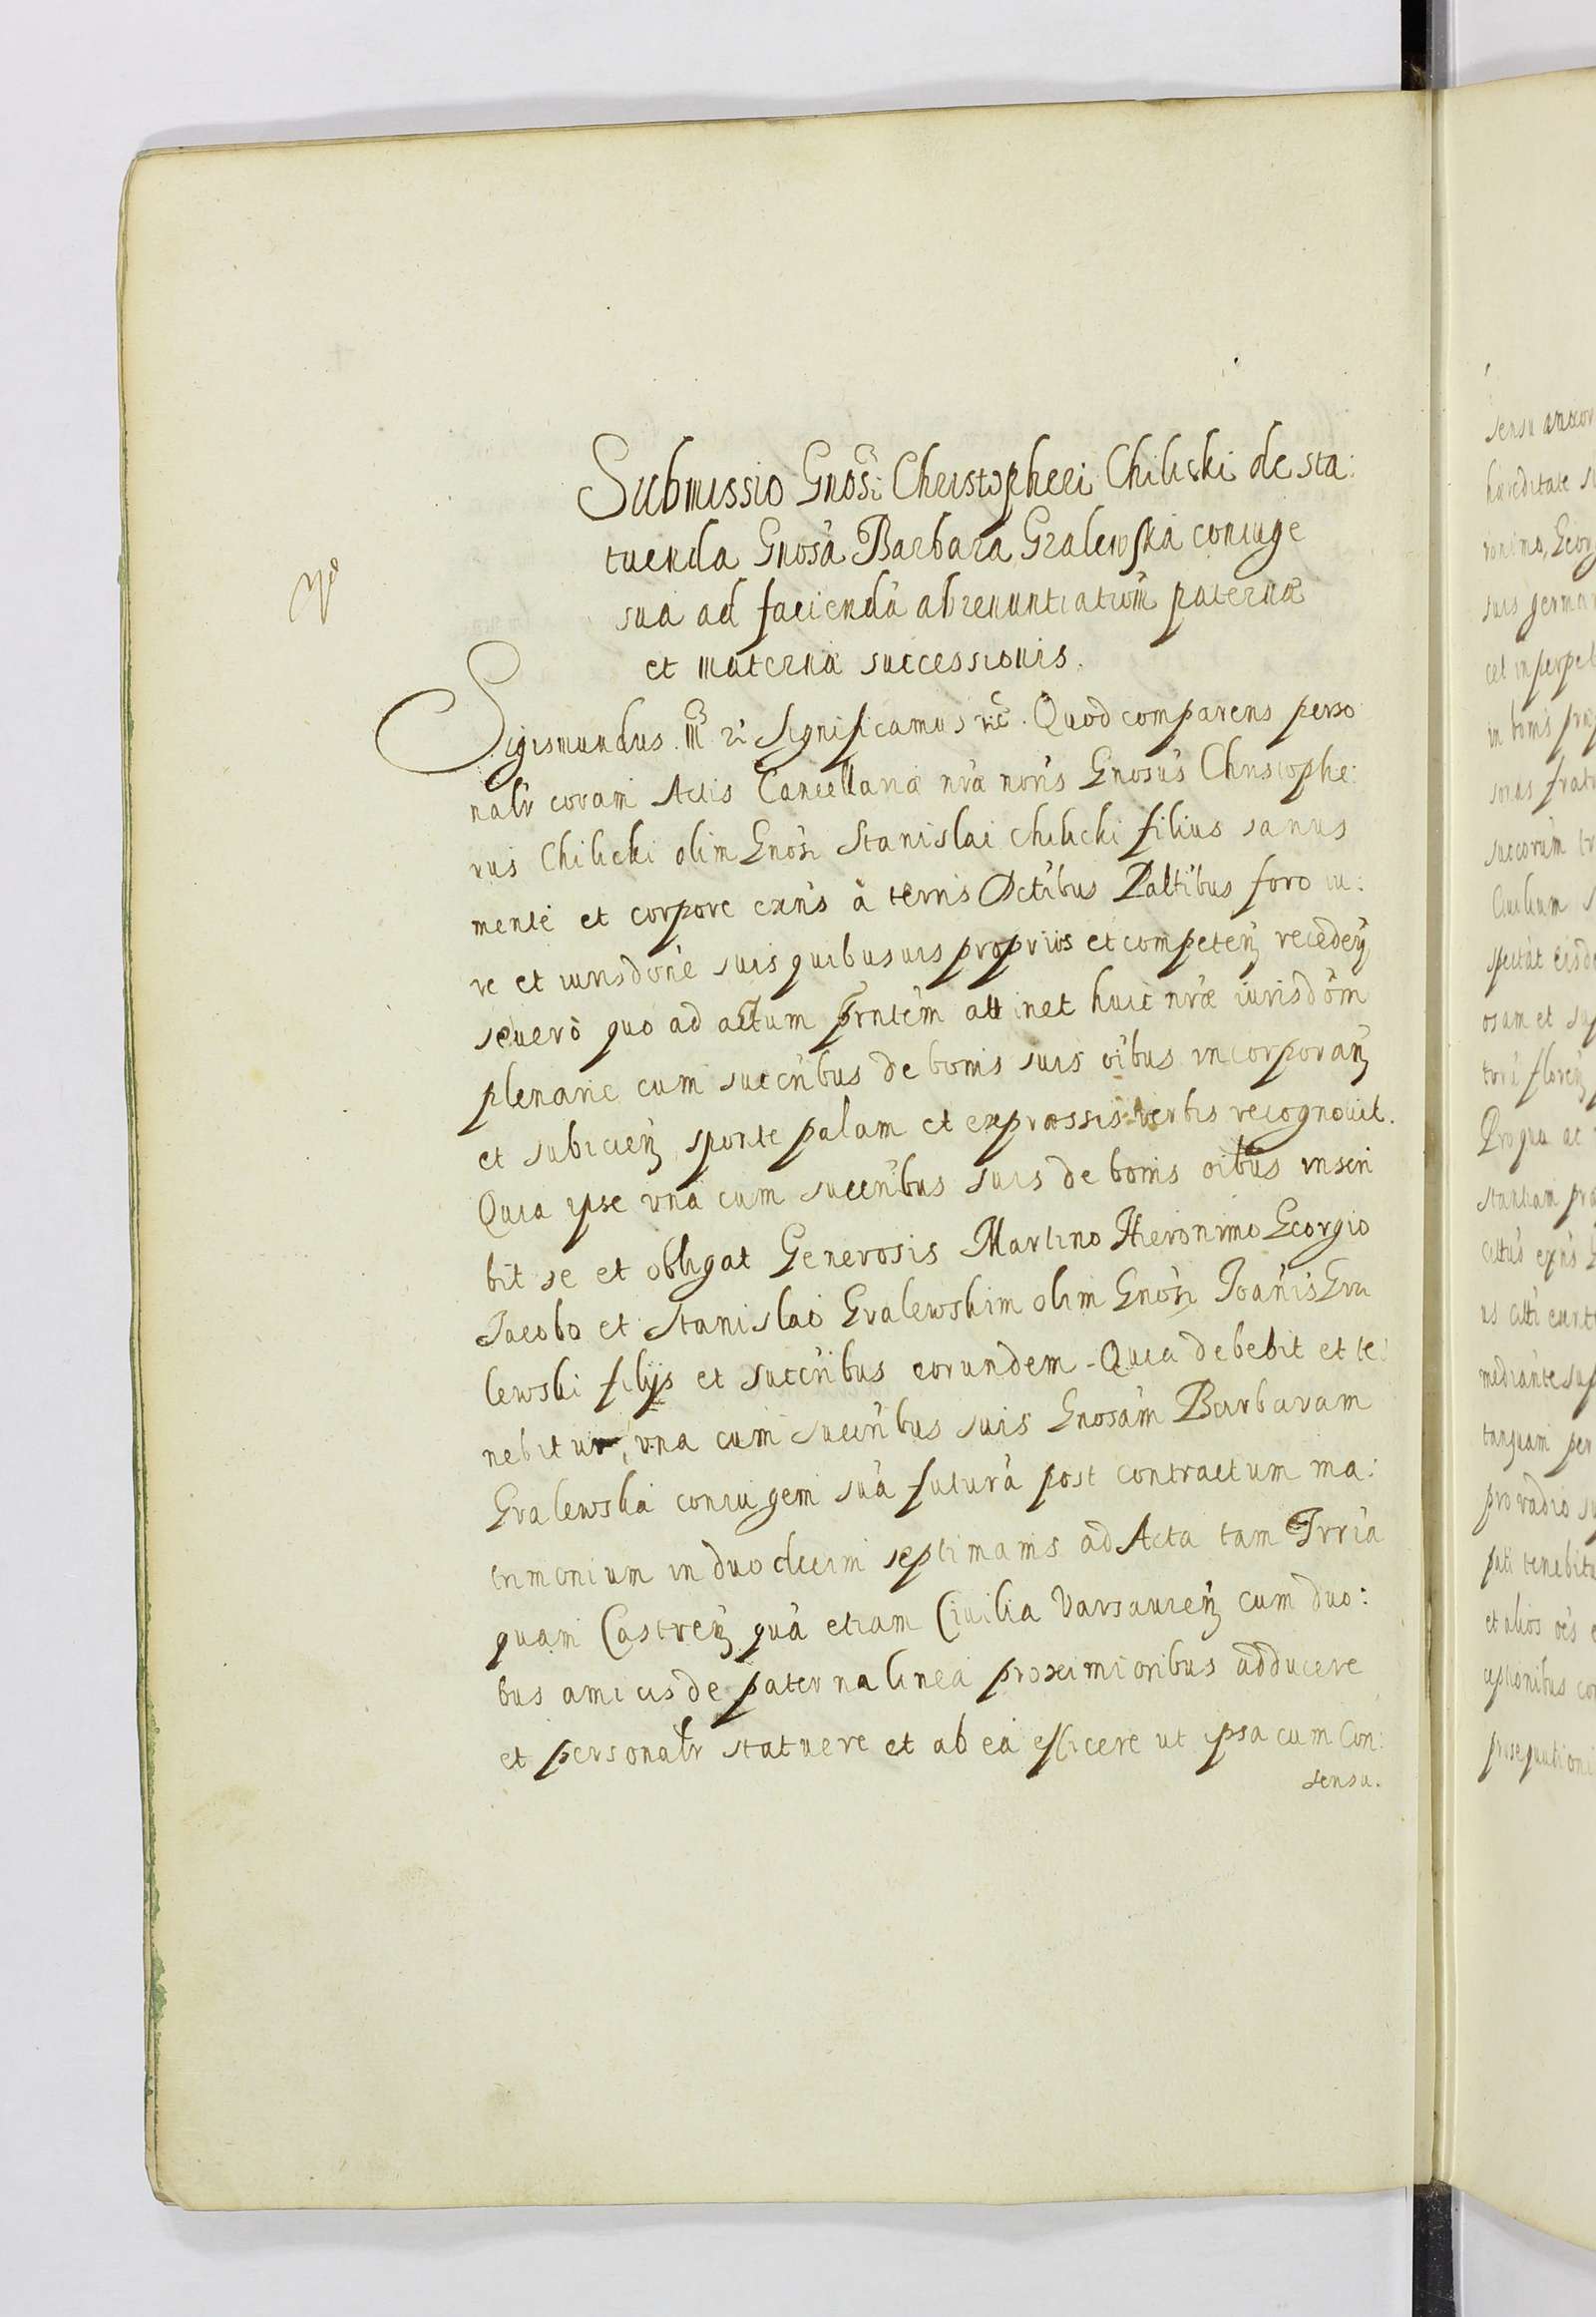 Submissio Gnosi Christopheri Chilicki de sta:
tuenda Gnosa Barbara Gralewska coniuge
sua ad facienda abrenuntiatiom paternæ
et maternæ successionis.
Sigismundus III Significamus Quod comparens perso
nalr coram Actis Cancellariæ nræ noris Gnosus Christophe:
rus Chilicki olim Gnosi Stanislai Chilicki filius sanus
mente et corpore exns à terris Dctibus Paltibus foro iu:
re et iurisdone suis quibusuis proprios et competeñ recedeñ
se uerò quo ad actum prntem attinet huic nræ iurisdom
plenarie cum succribus de bonis suis oibus incorporañ
et subicieñ sponte palam et expræssis verbis recognouit.
Quia ipse vna cum succribus suis de bonis oibus inscri
bit se et obligat Generosis Martino Hieronimo Georgio
Jacobo et Stanislao Gralewskim olim Gnosi Joanis Gra
lewski filijs et succribus eorundem - Quia debebit et te:
nebitur, vna cum succribus suis Gnosam Barbaram
Gralewska coniugem suâ futurâ post contractum ma:
trimonium in duodecim septimanis ad Acta tam Trria
quam Castreñ quâ etiam Ciuilia Varsauieñ cum duo:
bus amicis de paterna linea proximioribus adducere
et personalr statuere et ab ea efficere ut ipsa cum Con:
sensu.
sensu
hæreditate
suis
in bonis
Ciuilium
osam et
Pro qua ac
stantiam
mediante
tanquam per
pro vadio
pati tenebitu
et alios oes